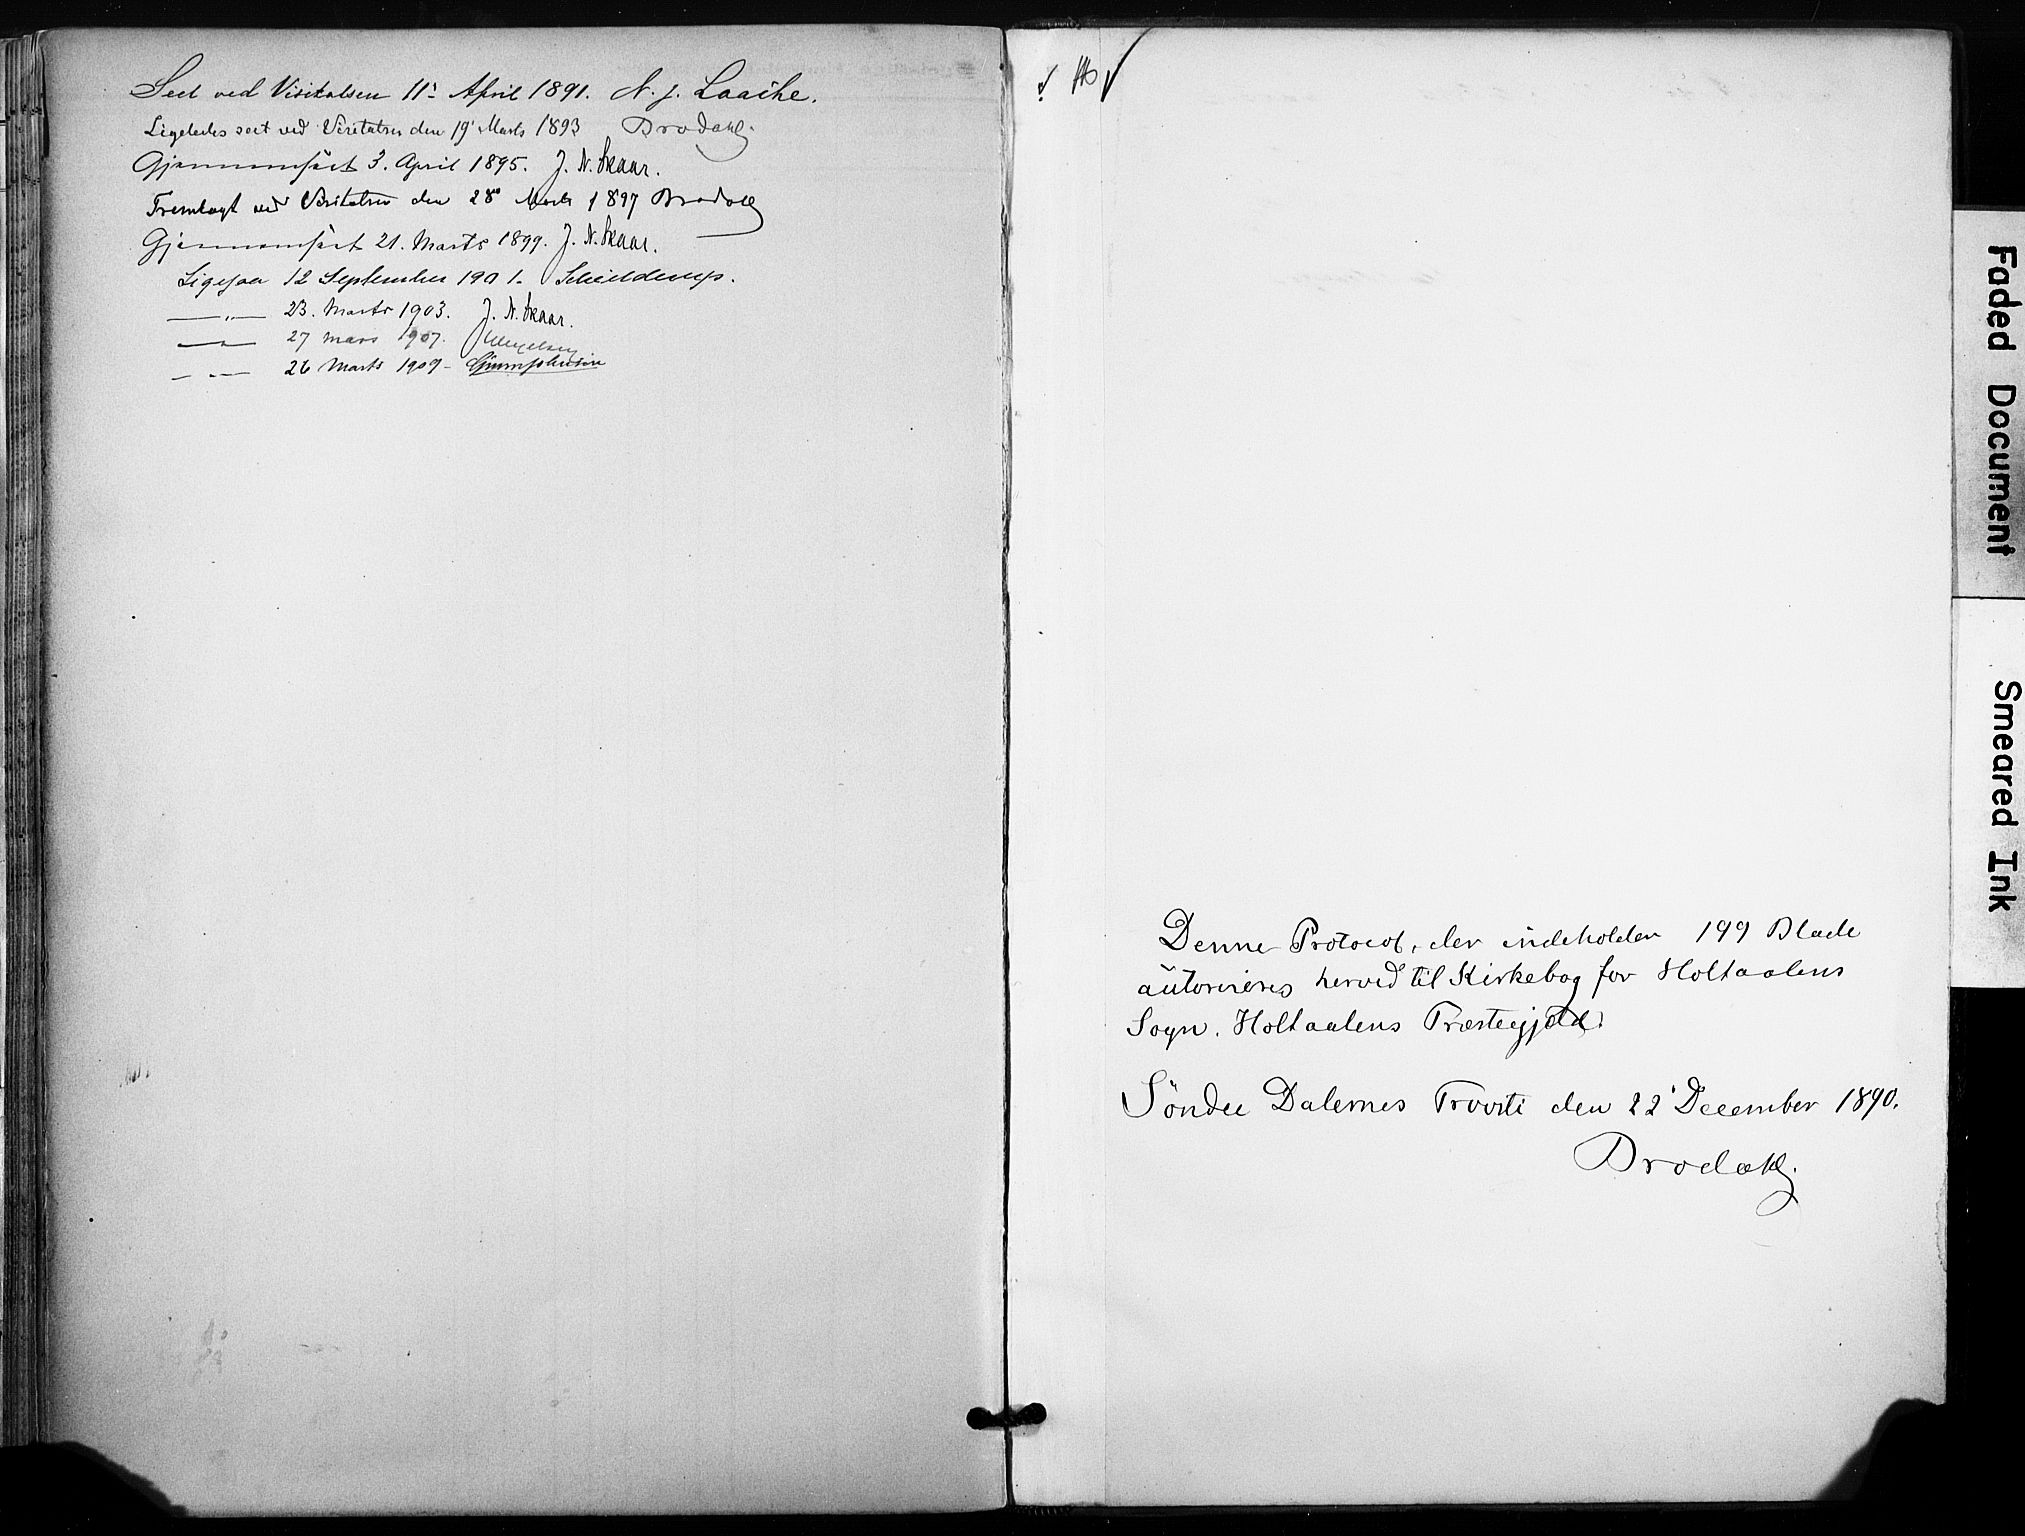 Seet ved Visitatsen 11' April 1891. N. J. Laache.
Ligeledes seet ved Visitatsen den 19' Marts 1893 Brodahl.
Gjennemseet 3. April 1895. J. N. Skaar.
Fremlagt ved Visitatsen den 28' Marts 1897 Brodahl
Gjennemseet 21. Marts 1899. J. N. Skaar.
Ligesaa 12 September 1901. Schielderup.
— „ — 23. Marts 1903. J. N. Skaar.
— „ — 27 mars 1907.
— „ — 26 Marts 1909 -
Denne Protocol, der indeholder 199 Blade
autoriseres herved til Kirkebog for Holtaalens
Sogn. Holtaalens Præstegjeld.
Söndre Dalernes Provsti den 22' December 1890.
Brodahl.
Faded Document
Smeared Ink